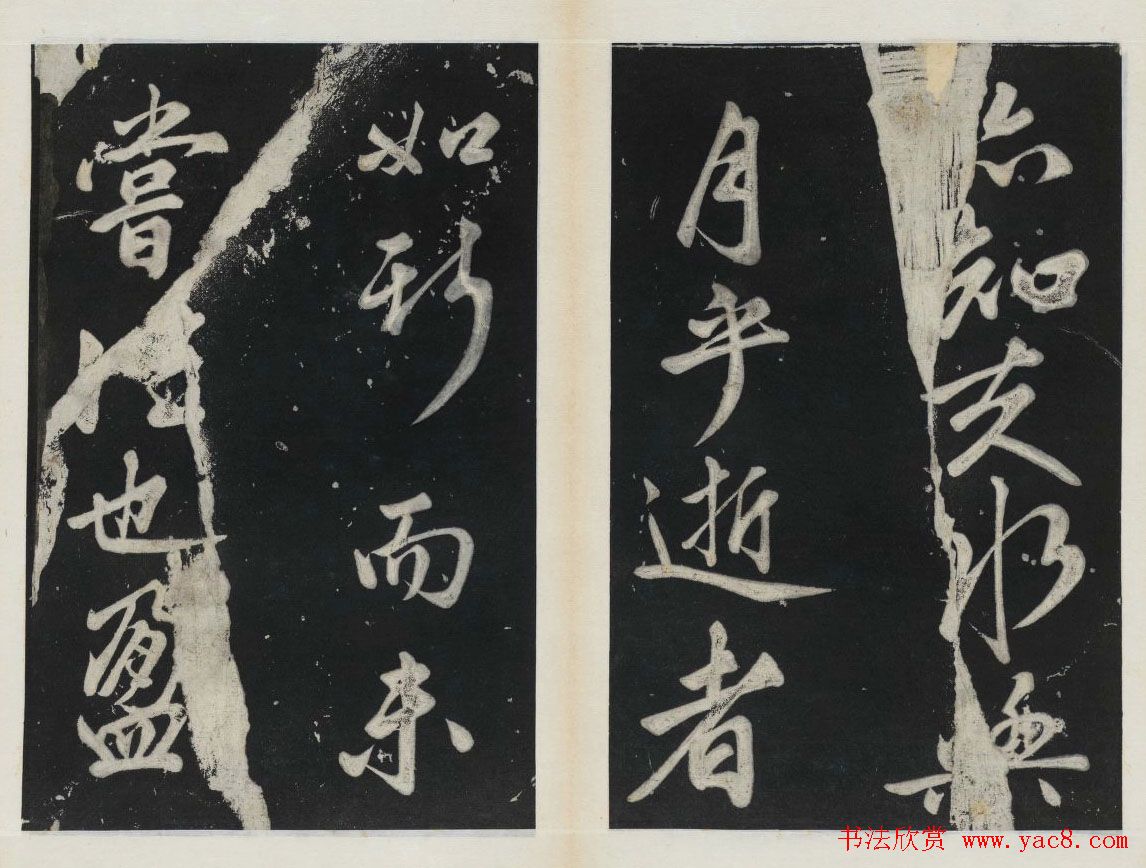 亦知夫水與
月乎逝者
如斯而未
嘗往也盈
书法欣赏 www.yac8.com